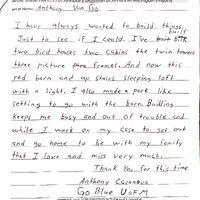 Name: Anthony Van Go
I have always wanted to build things.
Just to see if I could. I've built
two bird houses two cabins the twin towers
three picture frames. And now this
red barn and up stairs sleeping loft
with a light. I also made a park like
setting to go with the barn. Building
keeps me busy and out of trouble and
while I work on my case to get out
and go home to be with my family
that I love and miss very much.
Thank You for this time
Anthony
Go Blue U of M